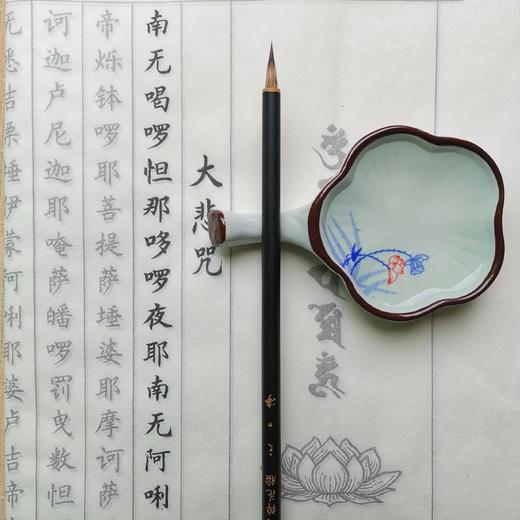 大悲咒
南无喝啰怛那哆啰夜耶南无阿唎
帝烁钵啰耶菩提萨埵婆耶摩诃萨
诃迦卢尼迦耶唵萨皤啰罚曳数怛
无悉吉栗埵伊蒙阿唎耶婆卢吉帝